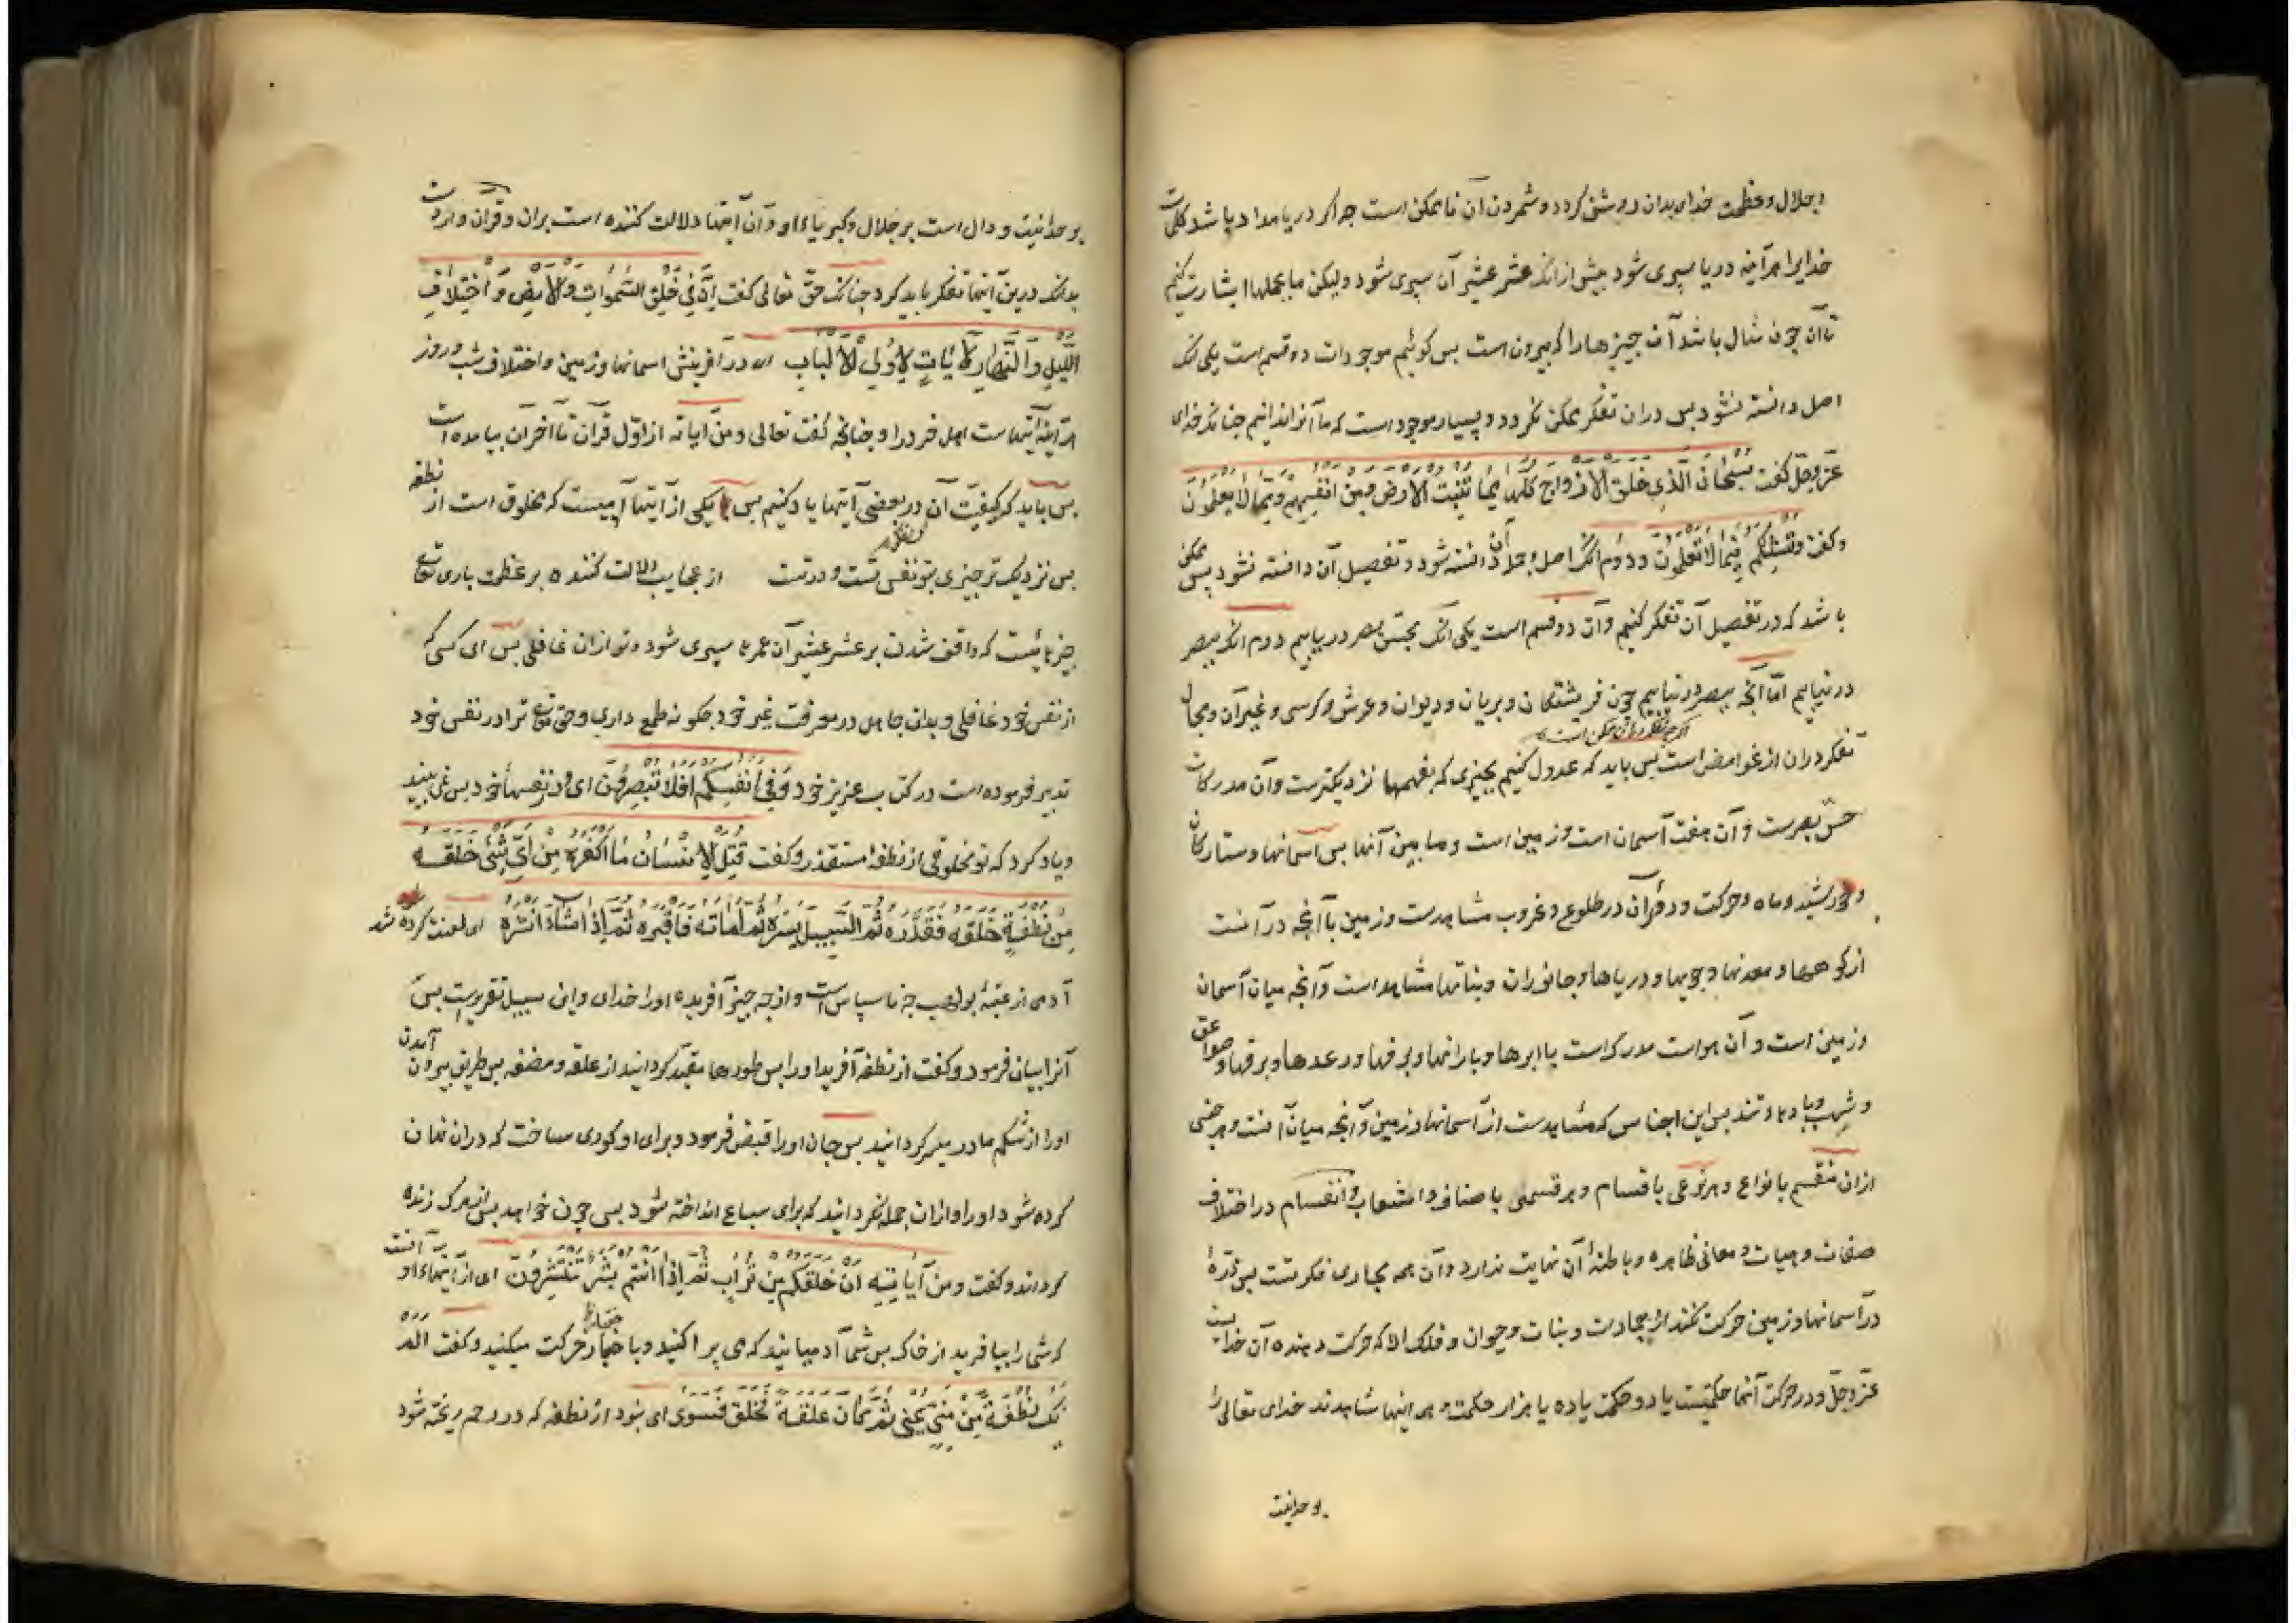 و جلال و عظمت خدای بدان روشن گردد و شمردن آن ناممکن است چه اگر دریا مداد باشد کلمات
خدایرا هرآینه دریا سپری شود پیش ازانکه عشر عشیر آن سپری شود ولیکن ما بجملها اشارت کنیم
تا آن چون مثال باشد آن چیزها را که بیرون است پس گوئیم موجودات دو قسم است یکی انکه
اصل دانسته نشود پس دران تفکر ممکن نگردد و بسیار موجود است که ما آنرا ندانیم چنانکه خدای
عز وجل گفت سُبْحَانَ الَّذِي خَلَقَ الْأَزْوَاجَ كُلَّهَا مِمَّا تُنْبِتُ الْأَرْضُ وَمِنْ أَنْفُسِهِمْ وَمِمَّا لَا يَعْلَمُونَ
و گفت وَنُنْشِئَكُمْ فِيمَا لَا تَعْلَمُونَ و دوم انکه اصل و جمله آن دانسته شود و تفصیل آن دانسته نشود پس ممکن
باشد که در تفصیل آن تفکر کنیم و آن دو قسم است یکی انکه بحس بصر دریابیم دوم انکه ببصر
درنیابیم اما آنچه ببصر درنیابیم چون فریشتگان و پریان و دیوان و عرش و کرسی و غیر آن و مجال
اگرچه تفکر دران ممکن است
تفکر دران از غوامض است پس باید که عدول کنیم بچیزی که بفهمها نزدیکترست و آن مدرکات
حس بصرست و آن هفت آسمان است و زمین است و ما بین آنها پس آسمانها و ستارگان
و خورشید و ماه و حرکت و دوران در طلوع و غروب مشاهدست و زمین با آنچه در آنست
از کوهها و معدنها و جویها و دریاها و جانوران و نباتها مشاهد است و آنچه میان آسمان
و زمین است و آن هواست مدرک است با ابرها و بارانها و برفها و رعدها و برقها و صواعق
و شهب و بادهاء تند پس این اجناس که مشاهدست از آسمانها و زمین و آنچه میان آنست و هر جنسی
ازان منقسم بانواع و هر نوعی باقسام و هر قسمی باصناف و انشعاب و انقسام در اختلاف
صفات و هیات و معانی ظاهره و باطنهٔ آن نهایت ندارد و آن همه مجاری فکرتست پس ذرهٔ
در آسمانها و زمین حرکت نکند از جمادات و نبات و حیوان و فلک الا که حرکت دهنده آن خدایست
عز وجل و در حرکت آنها حکمتیست یا دو حکمت یا ده یا هزار حکمت و همه اینها شاهدند خدای تعالی را
بوحدانیت
بوحدانیت و دال است بر جلال و کبریاء او و آن آیتها دلالت کننده است بران و قرآن واردست
بدانکه درین آیتها تفکر باید کرد چنانکه حق تعالی گفت إِنَّ فِي خَلْقِ السَّمَوَاتِ وَالْأَرْضِ وَاخْتِلَافِ
اللَّيْلِ وَالنَّهَارِ لَآيَاتٍ لِأُولِي الْأَلْبَابِ ای در آفرینش اسمانها و زمین و اختلاف شب و روز
هرآینه آیتهاست اهل خرد را و چنانچه گفت تعالی و من آیاته از اول قرآن تا آخر آن بیامده است
پس باید که کیفیت آن در بعضی آیتها یاد کنیم پس یکی از آیتها آدمیست که مخلوق است از نطفه
پس نزدیک تر چیزی بتو نفس تست و درتست از عجایب دلالت کننده بر عظمت باری تعالی
چیزهائیست که واقف شدن بر عشر عشیر آن عمرها سپری شود و تو ازان غافلی پس ای کسی که
از نفس خود غافلی و بدان جاهل در معرفت غیر خود چگونه طمع داری و حق تعالی ترا در نفس خود
تدبر فرموده است در کتاب عزیز خود وَفِي أَنْفُسِكُمْ أَفَلَا تُبْصِرُونَ ای و در نفسهاء خود پس نمی بینید
و یاد کرد که تو مخلوقی از نطفهٔ مستقذر و گفت قُتِلَ الْإِنْسَانُ مَا أَكْفَرَهُ مِنْ أَيِّ شَيْءٍ خَلَقَهُ
مِنْ نُطْفَةٍ خَلَقَهُ فَقَدَّرَهُ ثُمَّ السَّبِيلَ يَسَّرَهُ ثُمَّ أَمَاتَهُ فَأَقْبَرَهُ ثُمَّ إِذَا شَاءَ أَنْشَرَهُ ای لعنت کرده شد
آدمی از عتبهٔ بولهب چه ناسپاس است و از چه چیز آفریده او را خدای و این سبیل تقریرست پس
آنرا بیان فرمود و گفت از نطفه آفرید او را پس طورها مقید گردانید از علقه و مضغه پس طریق بیرون آمدن
او را از شکم مادر میسر گردانید پس جان او را قبض فرمود و برای او گوری ساخت که دران نهان
کرده شود او را و ازان جمله نگردانید که برای سباع انداخته شود پس چون خواهد پس از مرگ زنده
گرداند و گفت وَمِنْ آيَاتِهِ أَنْ خَلَقَكُمْ مِنْ تُرَابٍ ثُمَّ إِذَا أَنْتُمْ بَشَرٌ تَنْتَشِرُونَ ای از آیتهاء او آنست
که شما را بیافرید از خاک پس شما آدمیانید که می پراکنید و باختیار حرکت میکنید و گفت أَلَمْ
يَكُ نُطْفَةً مِنْ مَنِيٍّ يُمْنَى ثُمَّ كَانَ عَلَقَةً فَخَلَقَ فَسَوَّى ای نبود از نطفه که در رحم ریخته شود